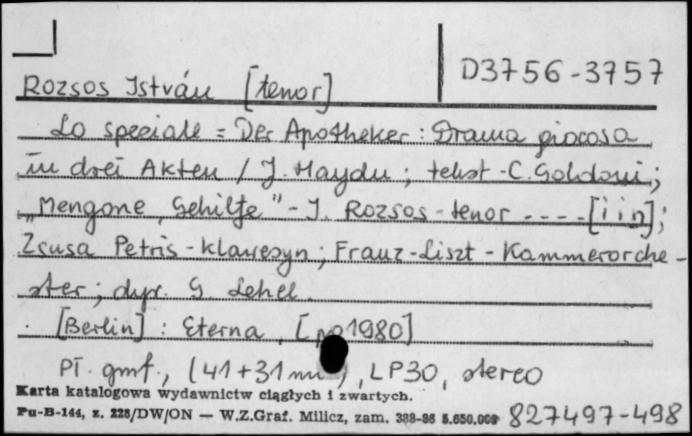 D3756-3757
Rozsos István [tenor]
Lo speziale = Der Apotheker : Drama giocosa
in drei Akten / J. Haydn ; tekst - C. Goldoni ;
„Mengone, Gehilfe" - I. Rozsos - tenor ---- [i in] ;
Zsusa Petris - klawesyn ; Franz-Liszt - Kammerorche-
ster ; dyr. G Lehel.
[Berlin] : Eterna, [po 1980]
Pł. gmf., (41+31 min), LP30, stereo
Karta katalogowa wydawnictw ciągłych i zwartych.
Pu-B-144, z. 228/DW/ON — W.Z.Graf. Milicz, zam. 388-86 5.650.000
827497-498